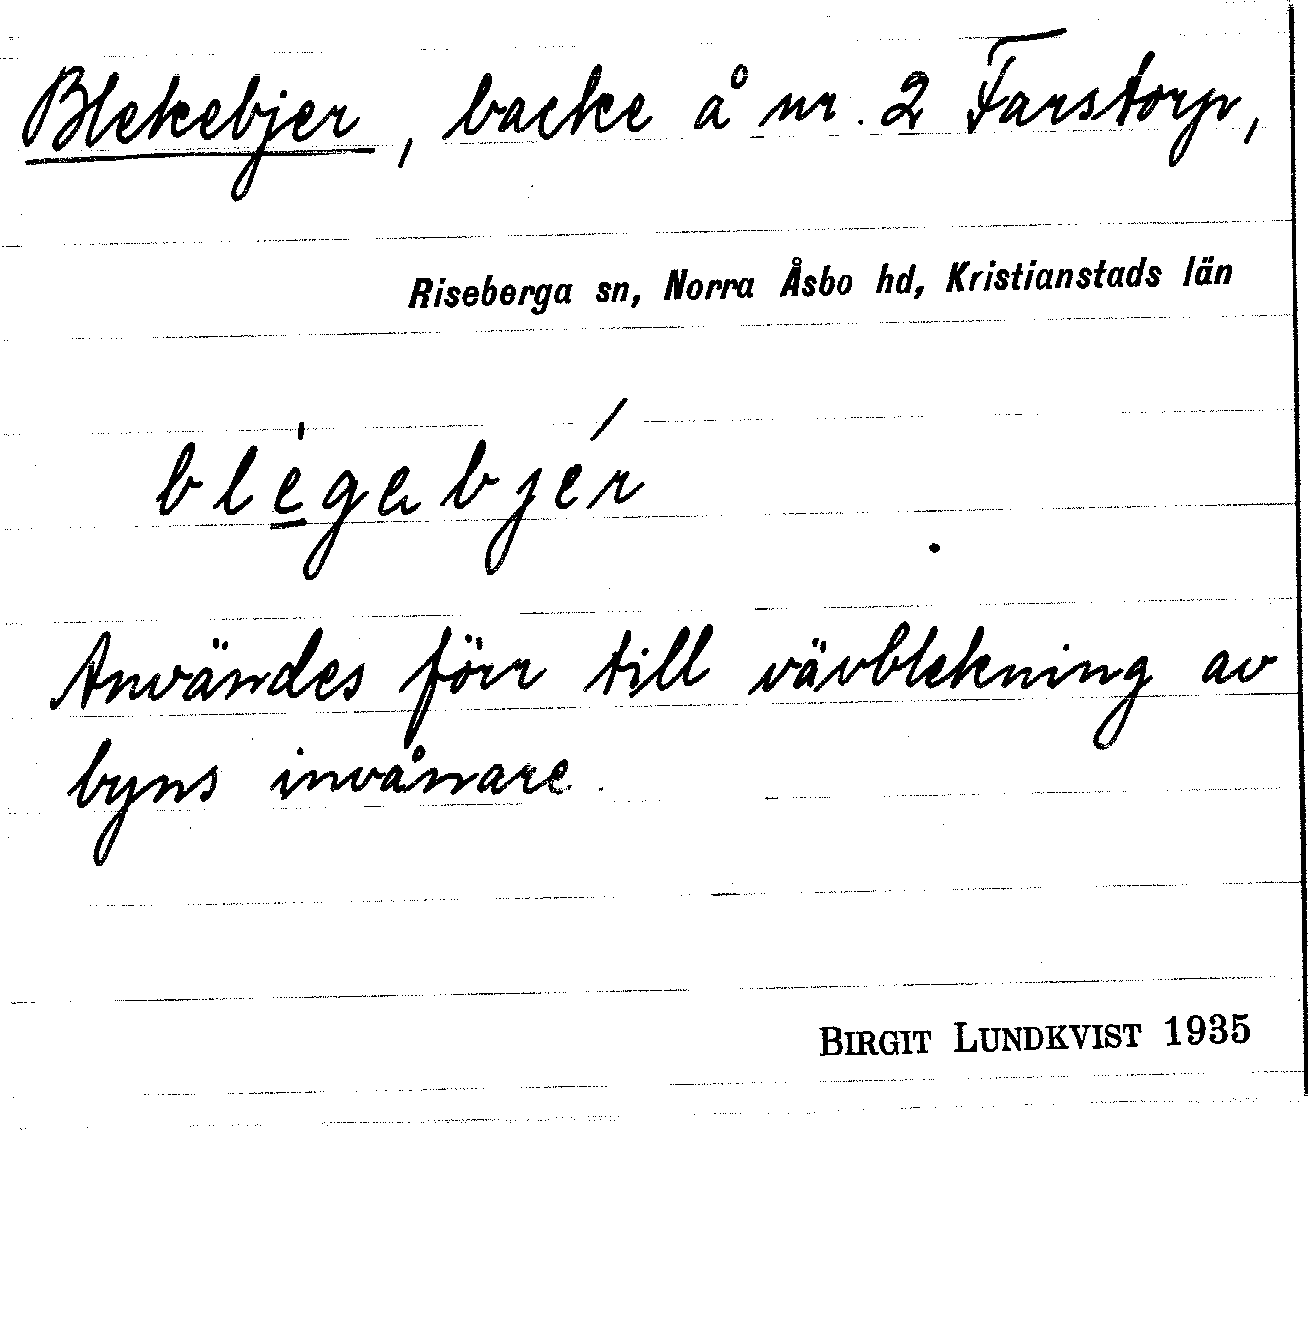 Blekebjer, backe å nr. 2 Farstorp,
Riseberga sn, Norra Åsbo hd, Kristianstads län
blégabjér
Användes förr till vävblekning av
byns invånare.
BIRGIT LUNDKVIST 1935